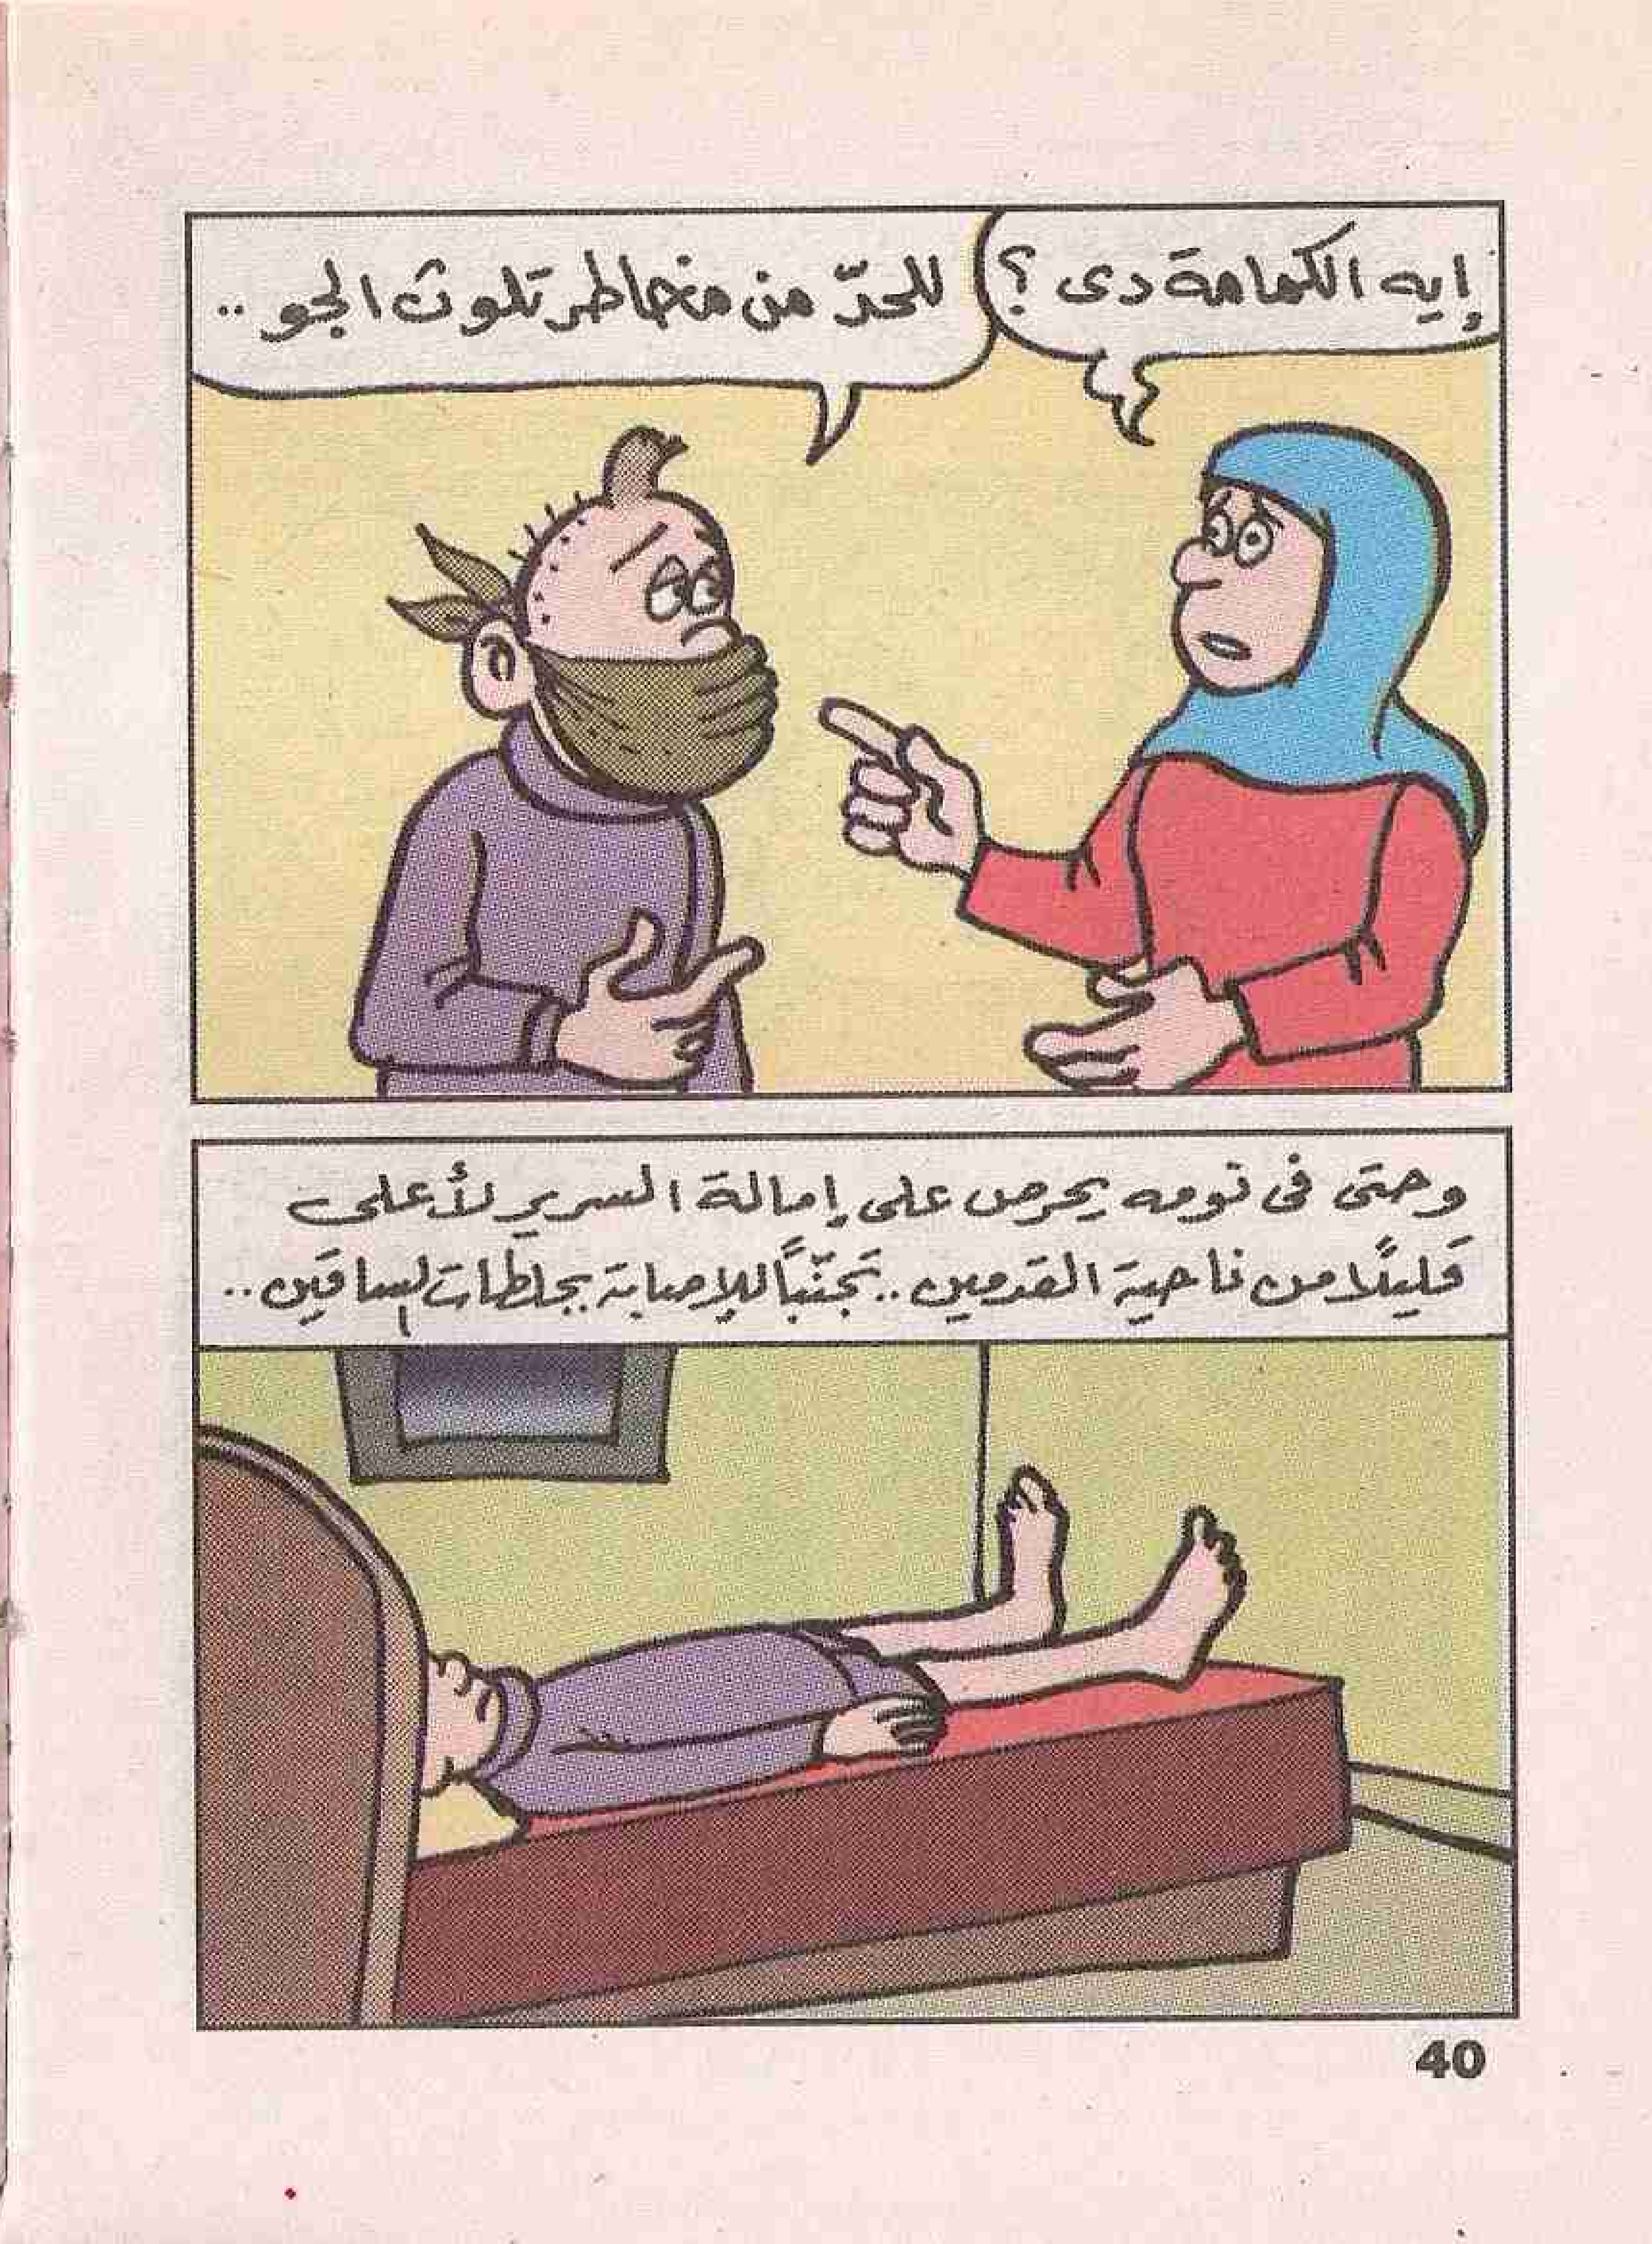 إيه الكمامة دى ؟
للحدّ من مخاطر تلوث الجو ..
وحتى فى نومه يحرص على إمالة السرير لأعلى
قليلًا من ناحية القدمين .. تجنّبًا للإصابة بجلطات الساقين ..
40